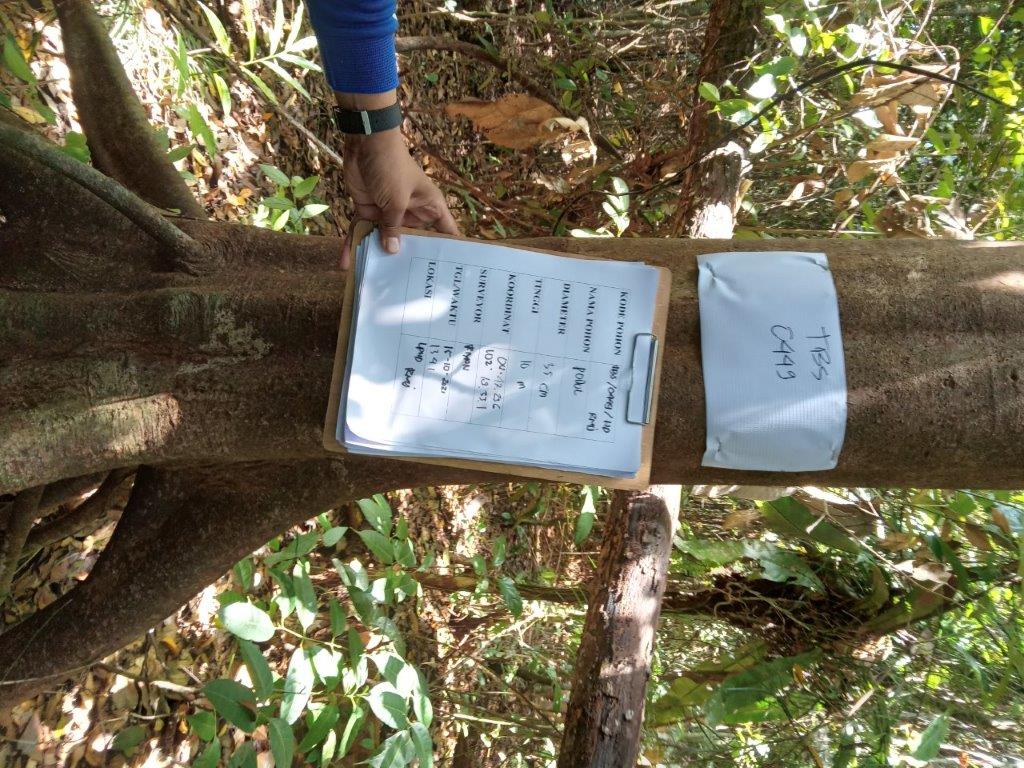 TBS
0449
KODE POHON TBS/0449/HD
RMJ
NAMA POHON PODUL
DIAMETER 35 CM
TINGGI 10 m
KOORDINAT
102°
SURVEYOR
TGL/WAKTU 15-10-2021
1341
LOKASI LPHD RMJ